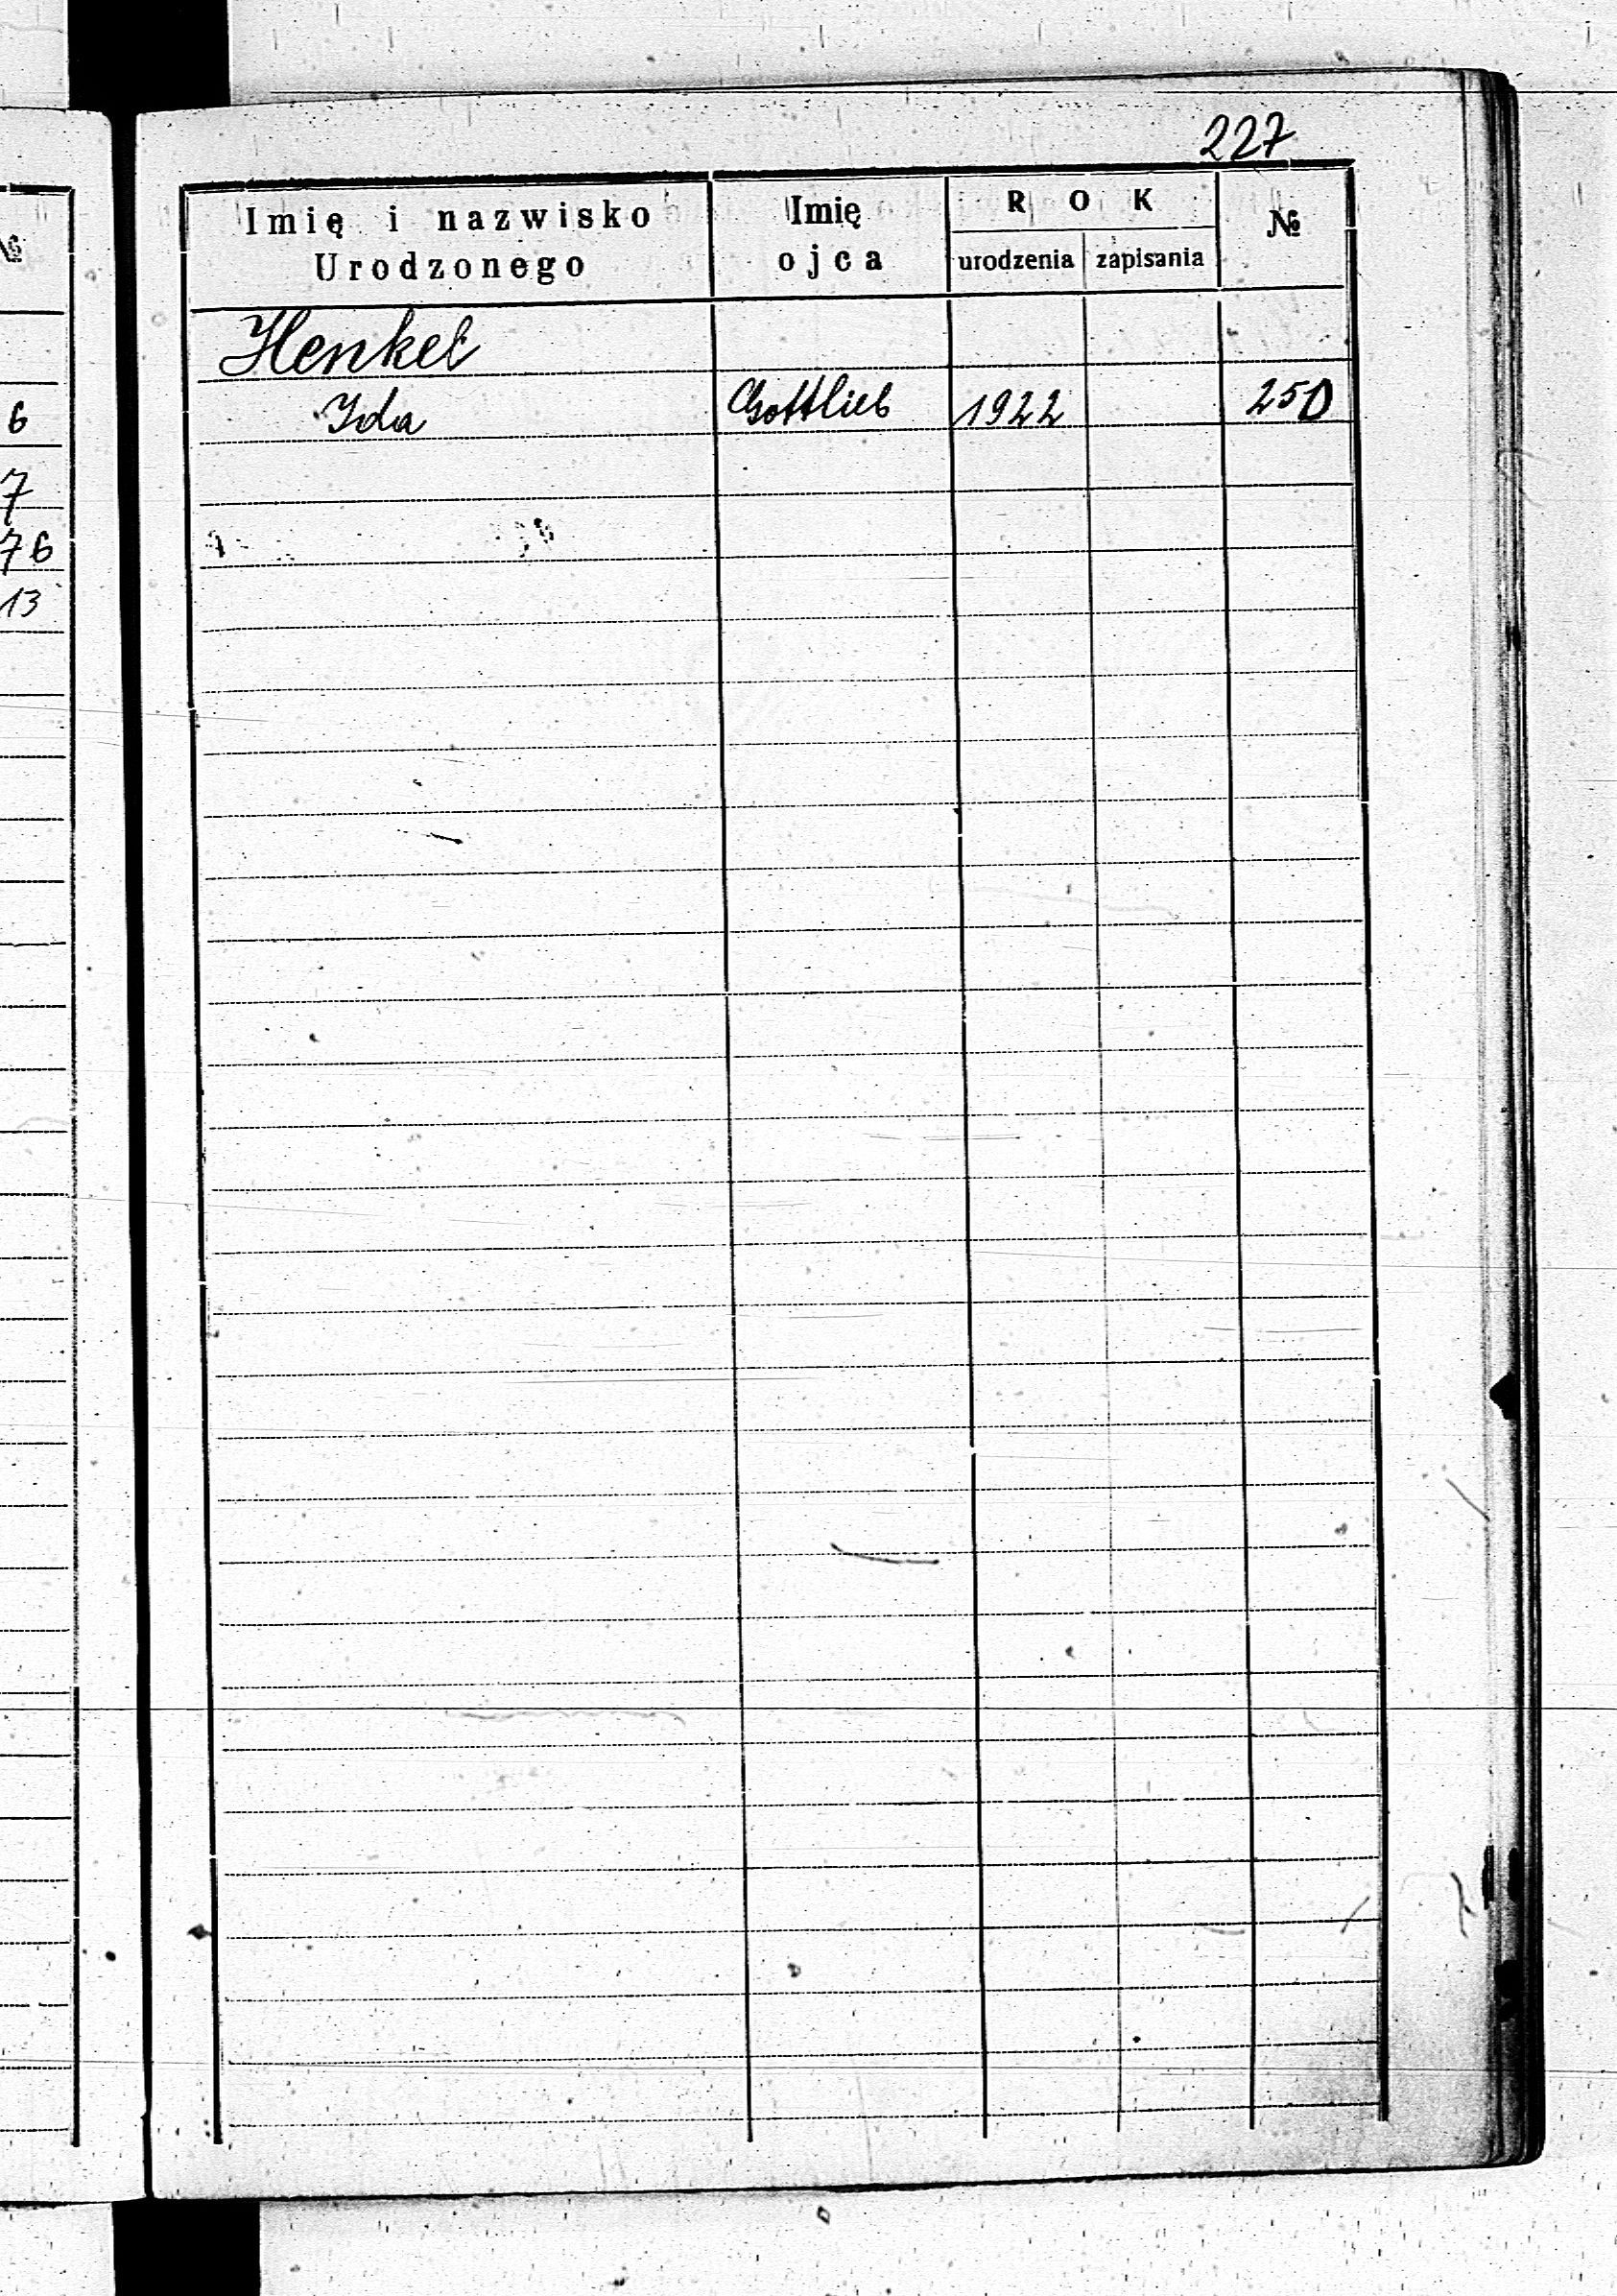 227
Imię i nazwisko Urodzonego
Imię ojca
ROK
urodzenia
zapisania
№
Henkel
Ida Gottlieb 1922 250
№
6
7
76
13